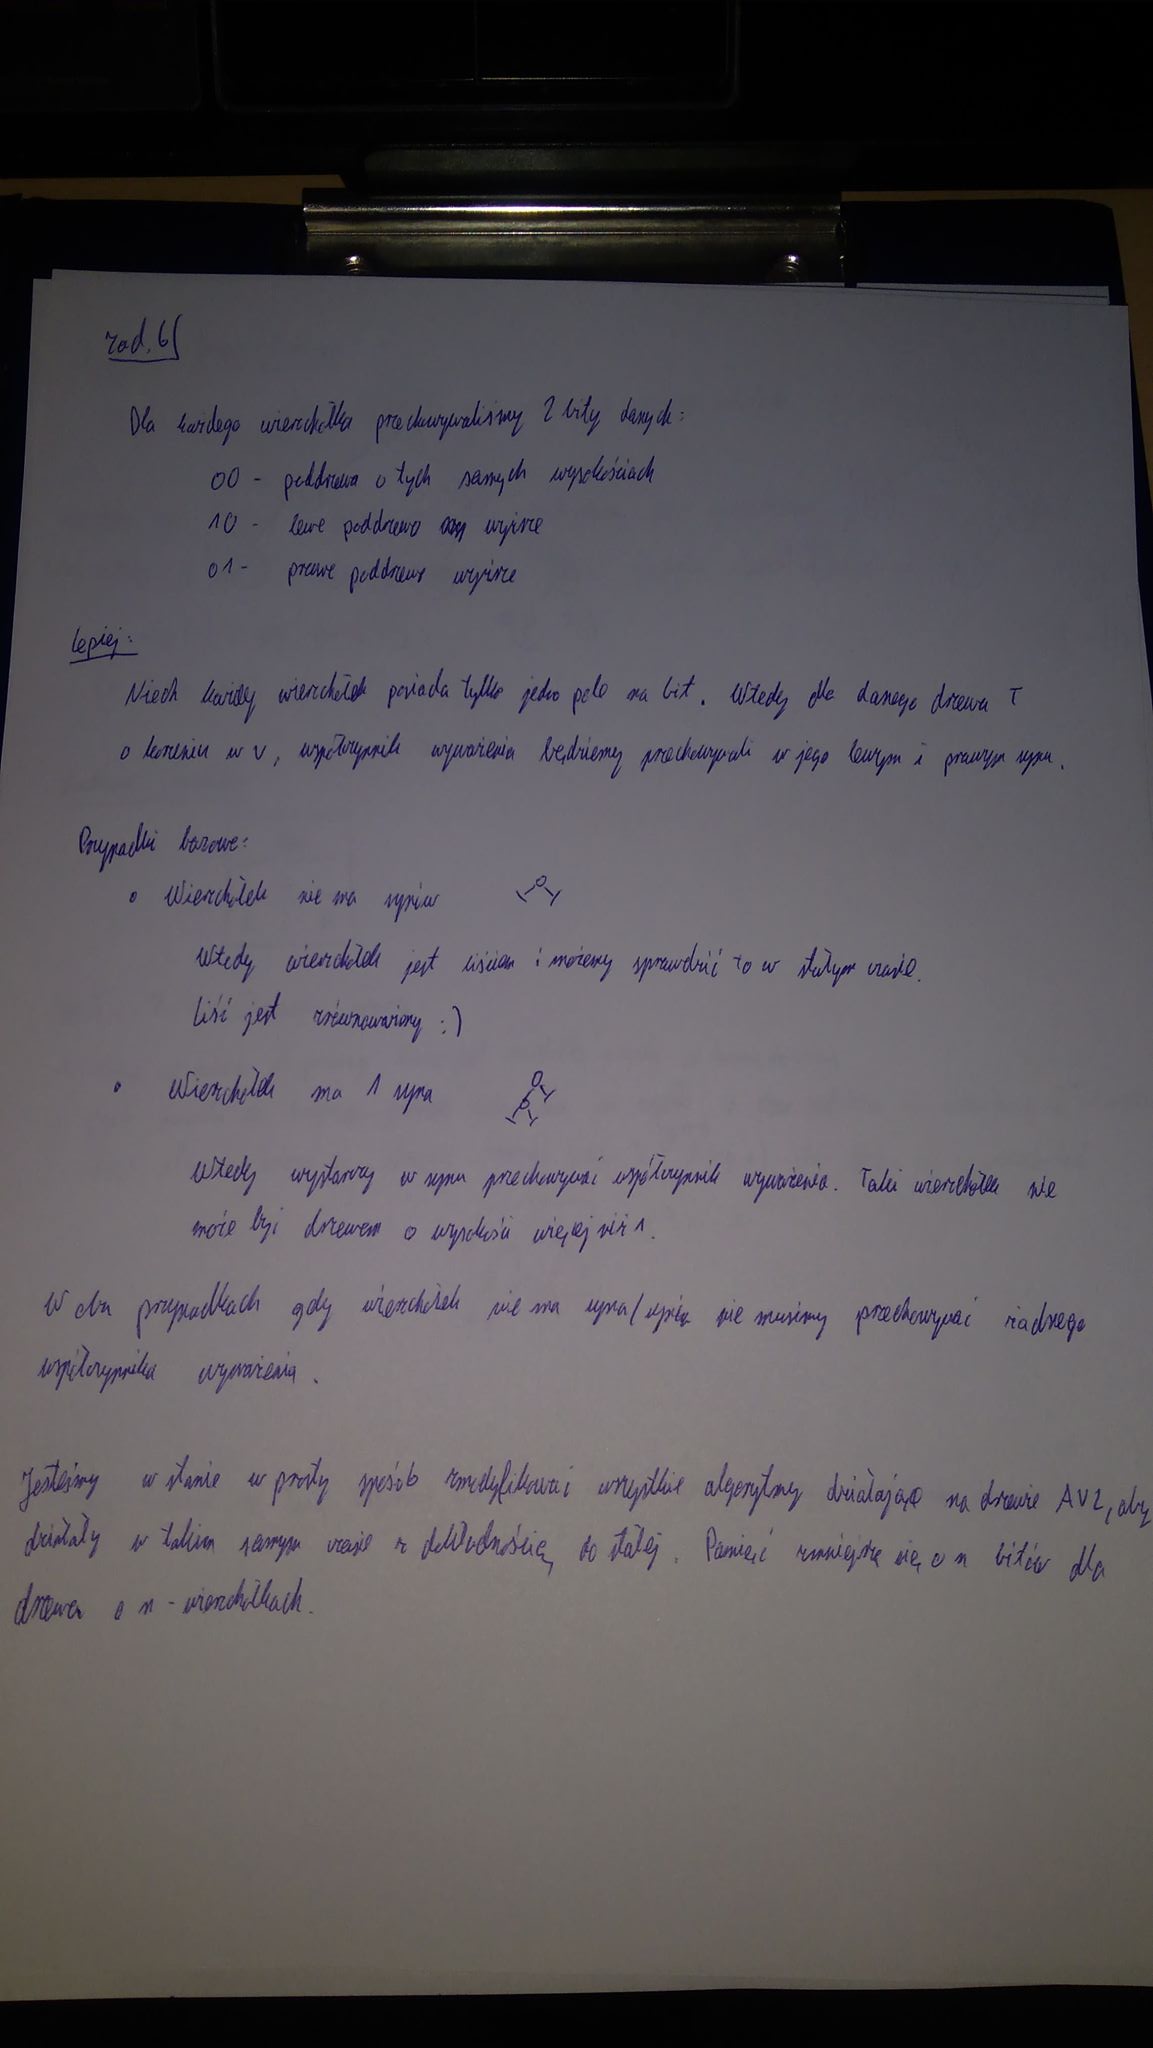 zad. 6
Dla każdego wierzchołka przechowywaliśmy 2 bity danych:
00 - poddrzewa o tych samych wysokościach
10 - lewe poddrzewo wyższe
01 - prawe poddrzewo wyższe
Lepiej:
Niech każdy wierzchołek posiada tylko jedno pole na bit. Wtedy dla danego drzewa T
o korzeniu w v, współczynnik wyważenia będziemy przechowywali w jego lewym i prawym synu.
Przypadki bazowe:
Wierzchołek nie ma synów
Wtedy wierzchołek jest liściem i możemy sprawdzić to w stałym czasie.
Liść jest zrównoważony :)
Wierzchołek ma 1 syna
Wtedy wystarczy w synu przechowywać współczynnik wyważenia. Taki wierzchołek nie
może być drzewem o wysokości więcej niż 1.
W obu przypadkach gdy wierzchołek nie ma syna/synów nie musimy przechowywać żadnego
współczynnika wyważenia.
Jesteśmy w stanie w prosty sposób zmodyfikować wszystkie algorytmy działające na drzewie AVL, aby
działały w takim samym czasie z dokładnością do stałej. Pamięć zmniejszę się o n bitów dla
drzewa o n - wierzchołkach.